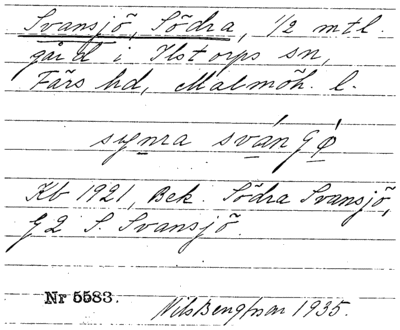 Svansjö, Södra, 1/2 mtl.
gård i Ilstorps sn,
Färs hd, Malmöh. l.
synra svángǿ
Kb 1921, Bek. Södra Svansjö,
G 2 S. Svansjö.
Nr 5583.
Nils Bengtsson 1935.